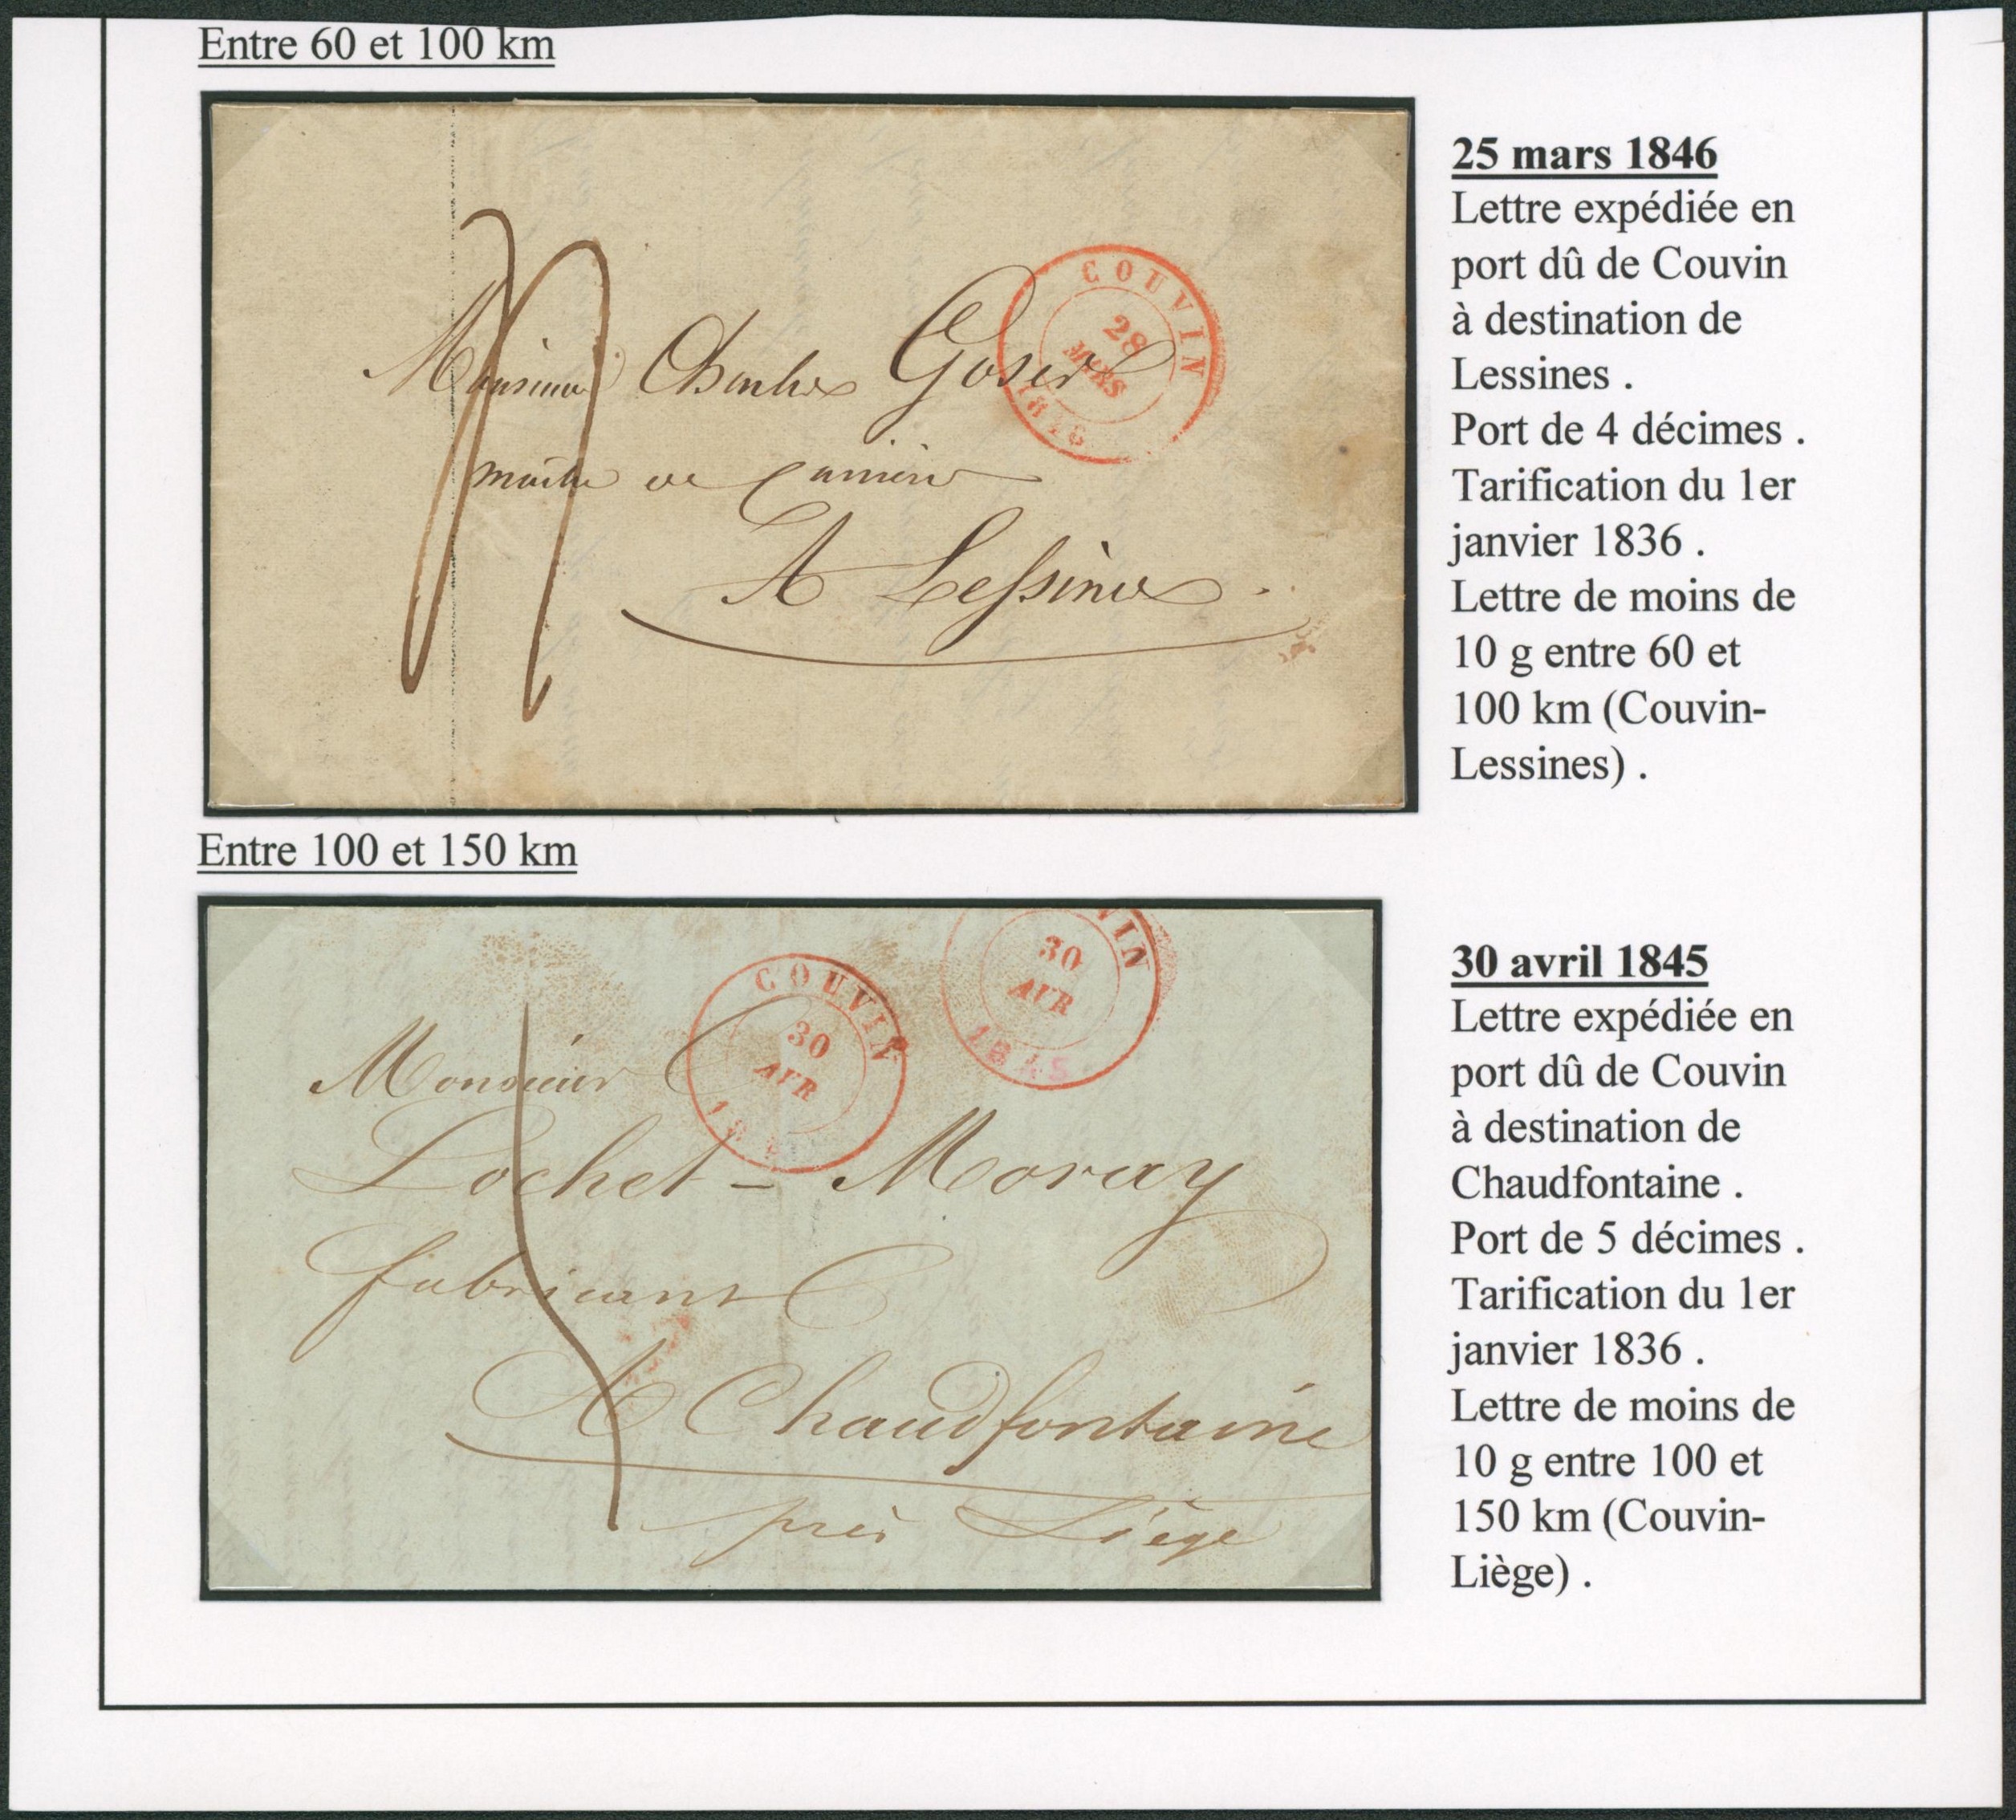 Entre 60 et 100 km
Monsieur Charles Goser
maître de Carrière
A Lessines.
COUVIN
28
MARS
1846
25 mars 1846
Lettre expédiée en
port dû de Couvin
à destination de
Lessines .
Port de 4 décimes .
Tarification du 1er
janvier 1836 .
Lettre de moins de
10 g entre 60 et
100 km (Couvin-
Lessines) .
Entre 100 et 150 km
Monsieur
Lochet - Moray
fabricant
A Chaudfontaine
près Liège
COUVIN
30
AVR
18
VIN
30
AVR
1845
30 avril 1845
Lettre expédiée en
port dû de Couvin
à destination de
Chaudfontaine .
Port de 5 décimes .
Tarification du 1er
janvier 1836 .
Lettre de moins de
10 g entre 100 et
150 km (Couvin-
Liège) .